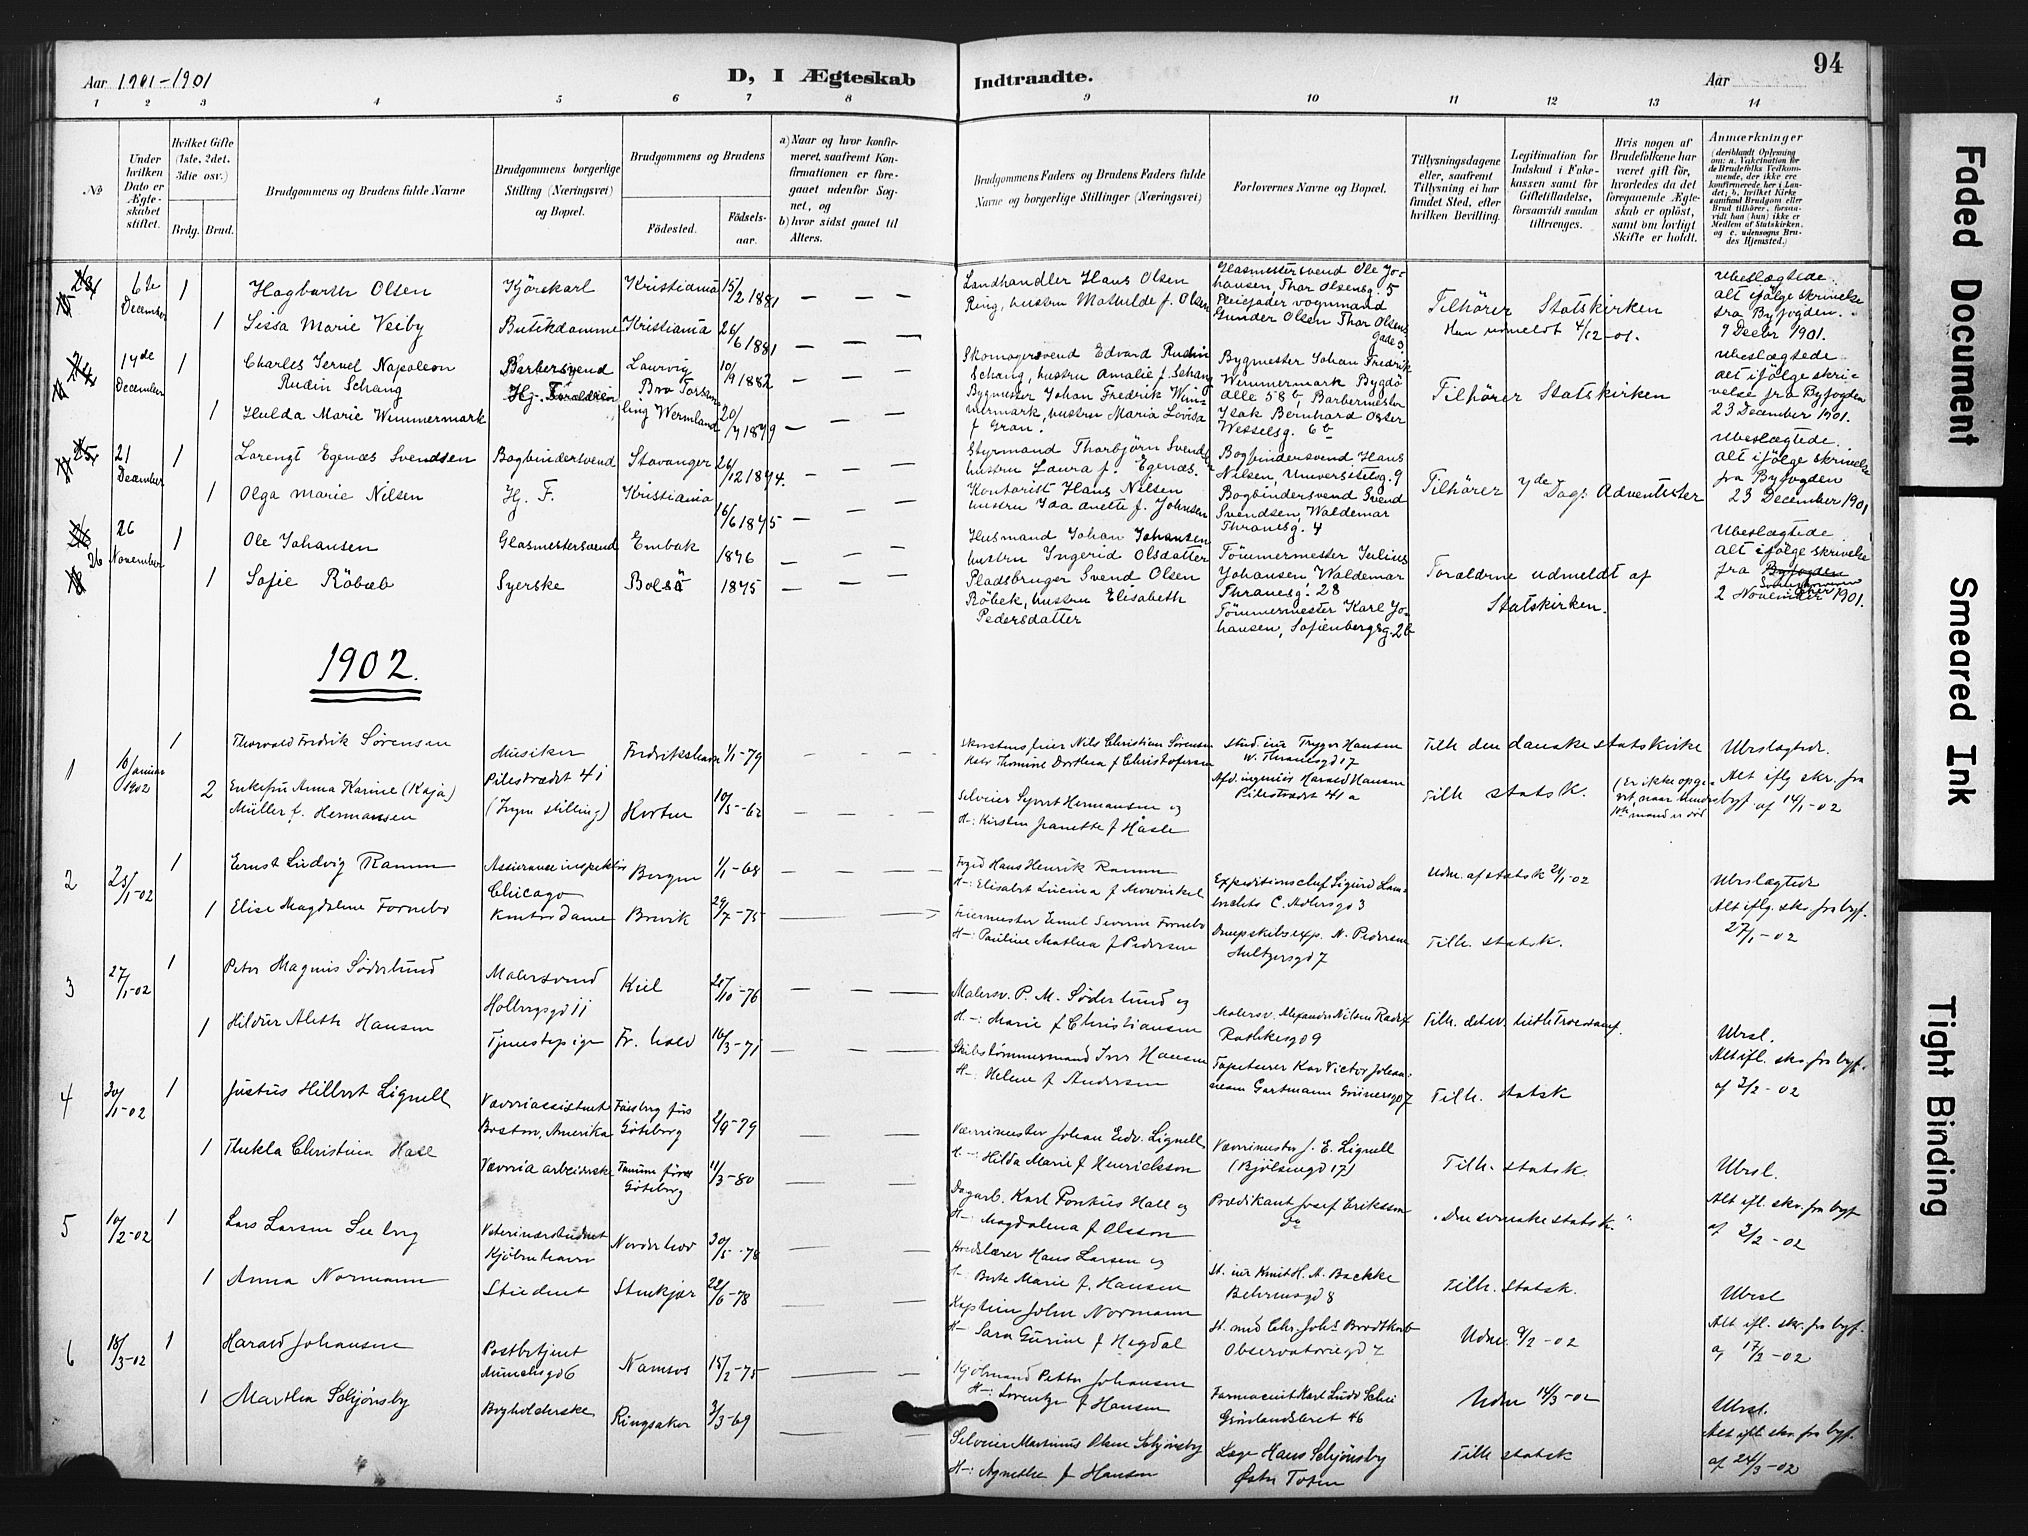 94
Aar 1901-1901
D, I Ægteskab
Indtraadte.
Aar
1 2 3 4 5 6 7 8 9 10 11 12 13 14
No
Under hvilken Dato er Ægteskabet stiftet.
Hvilket Gifte (1ste, 2det, 3die osv.)
Brdg. Brud.
Brudgommens og Brudens fulde Navne
Brudgommens borgerlige Stilling (Næringsvei) og Bopæl.
Brudgommens og Brudens
Fødested.
Fødsels-aar.
a) Naar og hvor konfir-
meret, saafremt Kon-
firmationen er fore-
gaaet udenfor Sog-
net, og
b) hvor sidst gaaet til
Alters.
Brudgommens Faders og Brudens Faders fulde
Navne og borgerlige Stillinger (Næringsvei)
Forlovernes Navne og Bopæl.
Tillysningsdagene
eller, saafremt
Tillysning ei har
fundet Sted, efter
hvilken Bevilling.
Legitimation for
Indskud i Enke-
kassen samt for
Giftetilladelse,
forsaavidt saadan
tiltrænges.
Hvis nogen af
Brudefolkene har
været gift før,
hvorledes da det
foregaaende Ægte-
skab er opløst,
samt om lovligt
Skifte er holdt.
Anmærkninger
(deriblandt Oplysning
om: a. Vakcination for
de Brudefolks Vedkom-
mende, der ikke ere
konfirmerede her i Lan-
det; b. hvilket Kirke
samfund Brudgom eller
Brud tilhører, forsaa-
vidt han (hun) ikke er
Medlem af Statskirken,
og c. udensogns Bru-
des Hjemsted.)
6te December 1 Hagbarth Olsen Kjörekarl Kristiania 15/2 1881 — — —
Landhandler Hans Olsen
Ring, hustru Mathilde f. Olsen
Glasmestersvend Ole Jo-
hansen, Thor Olsensg. 5
Pleiefader vognmand
Gunder Olsen Thor Olsens
gade 3
Tilhører Statskirken
Han udmeldt 4/12-01.
Ubeslægtede.
alt ifølge skrivelse
fra Byfogden.
7 Decbr 1901.
1 Sissa Marie Veiby Butikdamme Kristiania 26/6 1881 — — —
14de December 1 Charles Servel Napoleon
Rudin Schang
Barbersvend Laurvig 10/9 1882 — — —
Skomagersvend Edvard Rudin
Schang, hustru Amalie f. Schang
Bygmester Johan Fredrik Wim-
mermark, hustru Maria Lovisa
f. Gran.
Bygmester Johan Fredrik
Wimmermark Bygdö
alle 58 b, Barbermester
Isak Bernhard Oster
Wesselsg. 6 b
Tilhører Statskirken
Ubeslægtede.
alt ifølge skri-
velse fra Byfogden
23 December 1901.
1 Hulda Marie Wimmermark Hj. Foraldrene Bro Torsem
ling Wermland 20/7 1879 — —
21 December 1 Lorenzt Egenæs Svendsen Bogbindersvend Stavanger 26/12 1874. — — —
Styrmand Thorbjørn Svendsen
hustru Laura f. Egenæs.
Kontorist Hans Nilsen
hustru Ida Anette f. Johnsen
Bogbindersvend Hans
Nilsen, Universitetsg. 9
Bogbindersvend Svend
Svendsen, Waldemar
Thranesg. 4
Tilhører 7de Dags Adventister
Ubeslægtede.
alt ifølge skrivelse
fra Byfogden
23 December 1901
1 Olga Marie Nilsen Hj. F. Kristiania 16/6 1875 — — —
26 26 November 1 Ole Johansen Glasmestersvend Embak 1876 — — —
Husmand Johan Johansen
hustru Ingerid Olsdatter
Pladsbruger Svend Olsen
Röbek, hustru Elisabeth
Pedersdatter
Tømmermester Julius
Johansen, Waldemar
Thranesg. 28
Tømmermester Karl Jo-
hansen, Sofienbergsg. 2b
Foraldrne udmeldt af
Statskirken.
Ubeslægtede.
alt ifølge skrivelse
fra Byfogden
2 November 1901.
1 Sofie Röbæb Syerske Bolsö 1875 — — —
1902.
1 16 Januar 1902 1 Thorvald Fredrik Sørensen Musiker
Pilestrædet 41 Fredrikshavn 1/1-79 — — —
Skorstensfeier Nils Christian Sørensen
Kate Thomine Dorthea f Christofersen
Stud. iur Trygve Hansen
W. Thranesgd 17
Tilh den danske statskirke
Ubeslægtede.
2 Enkefru Anna Karine (Kaja)
Müller f. Hermansen (Ingen stilling) Horten 10/5-62 — — —
Selveier Syvert Hermansen og
H-: Kirsten Jeanette f Hasle
Afd. ingeniør Harald Hansen
Pilestrædet 41 a
Tilh statsk. (Er ikke opgi-
vet, naar hendes
1ste mand er död
Alt iflg skr. fra
byf. af 14/1-02
2 23/1-02 1 Ernst Ludvig Ramm Assuranceinspektør
Chicago Bergen 1/1-68
Foged Hans Henrik Ramm
H-: Elisabet Lucina f Mowinkel
Expeditionschef Sigurd Lam-
brechts C. Adlersgd 3
Udm. af statsk 21/1-02
Ubeslægtede
Alt iflg. skr. fra byf.
27/1-02
1 Elise Magdalene Fornebo Kontordame Brevik 29/7-75
Feiermester Emil Severin Fornebo
H-: Pauline Mathea f Pedersen
Dampskibsexp. N. Pedersen
Hultzersgd 7
Tilh. statsk.
3 27/1-02 1 Peter Magnus Søderlund Malersvend
Holbergsgd 11 Kiel 25/10-76 — — —
Malersv. P. M. Søderlund og
H-: Marie f Christiansen
Malersv. Alexander Nilsen
Rathkesgd 9
Ubesl.
Alt ifl. skr. fra byf.
af 3/2-02
1 Hildur Alette Hansen Tjenestepige Fr. hald 16/3-71
Skibstømmermand Iver Hansen
H-: Helene f Andersen
Tapetserer Karl Victor Johan-
nesen Gartmann Grünersgd 7
Tilh. statsk
4 30/1-02 1 Justus Hilbert Lignell Væveriassistent
Boston, Amerika
Göteborg 2/9-79
Værrimester Johan Edv. Lignell
H-: Hilda Marie f Henricksson
Væverimester J. E. Lignell
(Bjølsengd 17)
Tilh. statsk.
Ubesl.
Alt ifl. skr. fra byf
af 3/2-02
1 Thekla Christina Hall Væveriarbeiderske
Göteborg 11/3-80
Dagarb. Karl Pontus Hall og
H-: Magdalena f Olsson
Prædikant Josef Eriksson
do
"Den svenske statsk."
5 10/2-02 1 Lars Larsen Seeberg Veterinærstudent
Kjøbenhavn Norderhov 30/5-78
Hans Larsen og
H-: Berte Marie f. Hansen
H. A. Backke
Behrensgd 8
Tilh. statsk.
Ubesl
Alt ifl. skr. fra byf.
af 17/2-02
1 Anna Normann Student Stenkjær 22/6-78
Kaptein John Normann
H-: Sara Gurine f Hegdal
St. med Chr. Johs Brodtkorb
Observatoriegd 7
Udm. 9/2-02
6 18/3-02 1 Harald Johansen Postbetjent
Munchsgd 6 Namsos 15/2-75
Kjøbmand Petter Johansen
H-: Lorentze f Hansen
Farmaceut Karl Ludv Schei
Grønlandsleret 46
Udm 14/3-02
Ubesl.
Alt ifl. skr. fra byf.
af 24/3-02
1 Martha Schjønsby Bogholderske Ringsaker 3/3-69
Selveier Martinus Olsen Schjønsby
H-: Agnethe f Hansen
Læge Hans Schjønsby
Østre Toten
Tilh statsk
Faded Document
Smeared Ink
Tight Binding